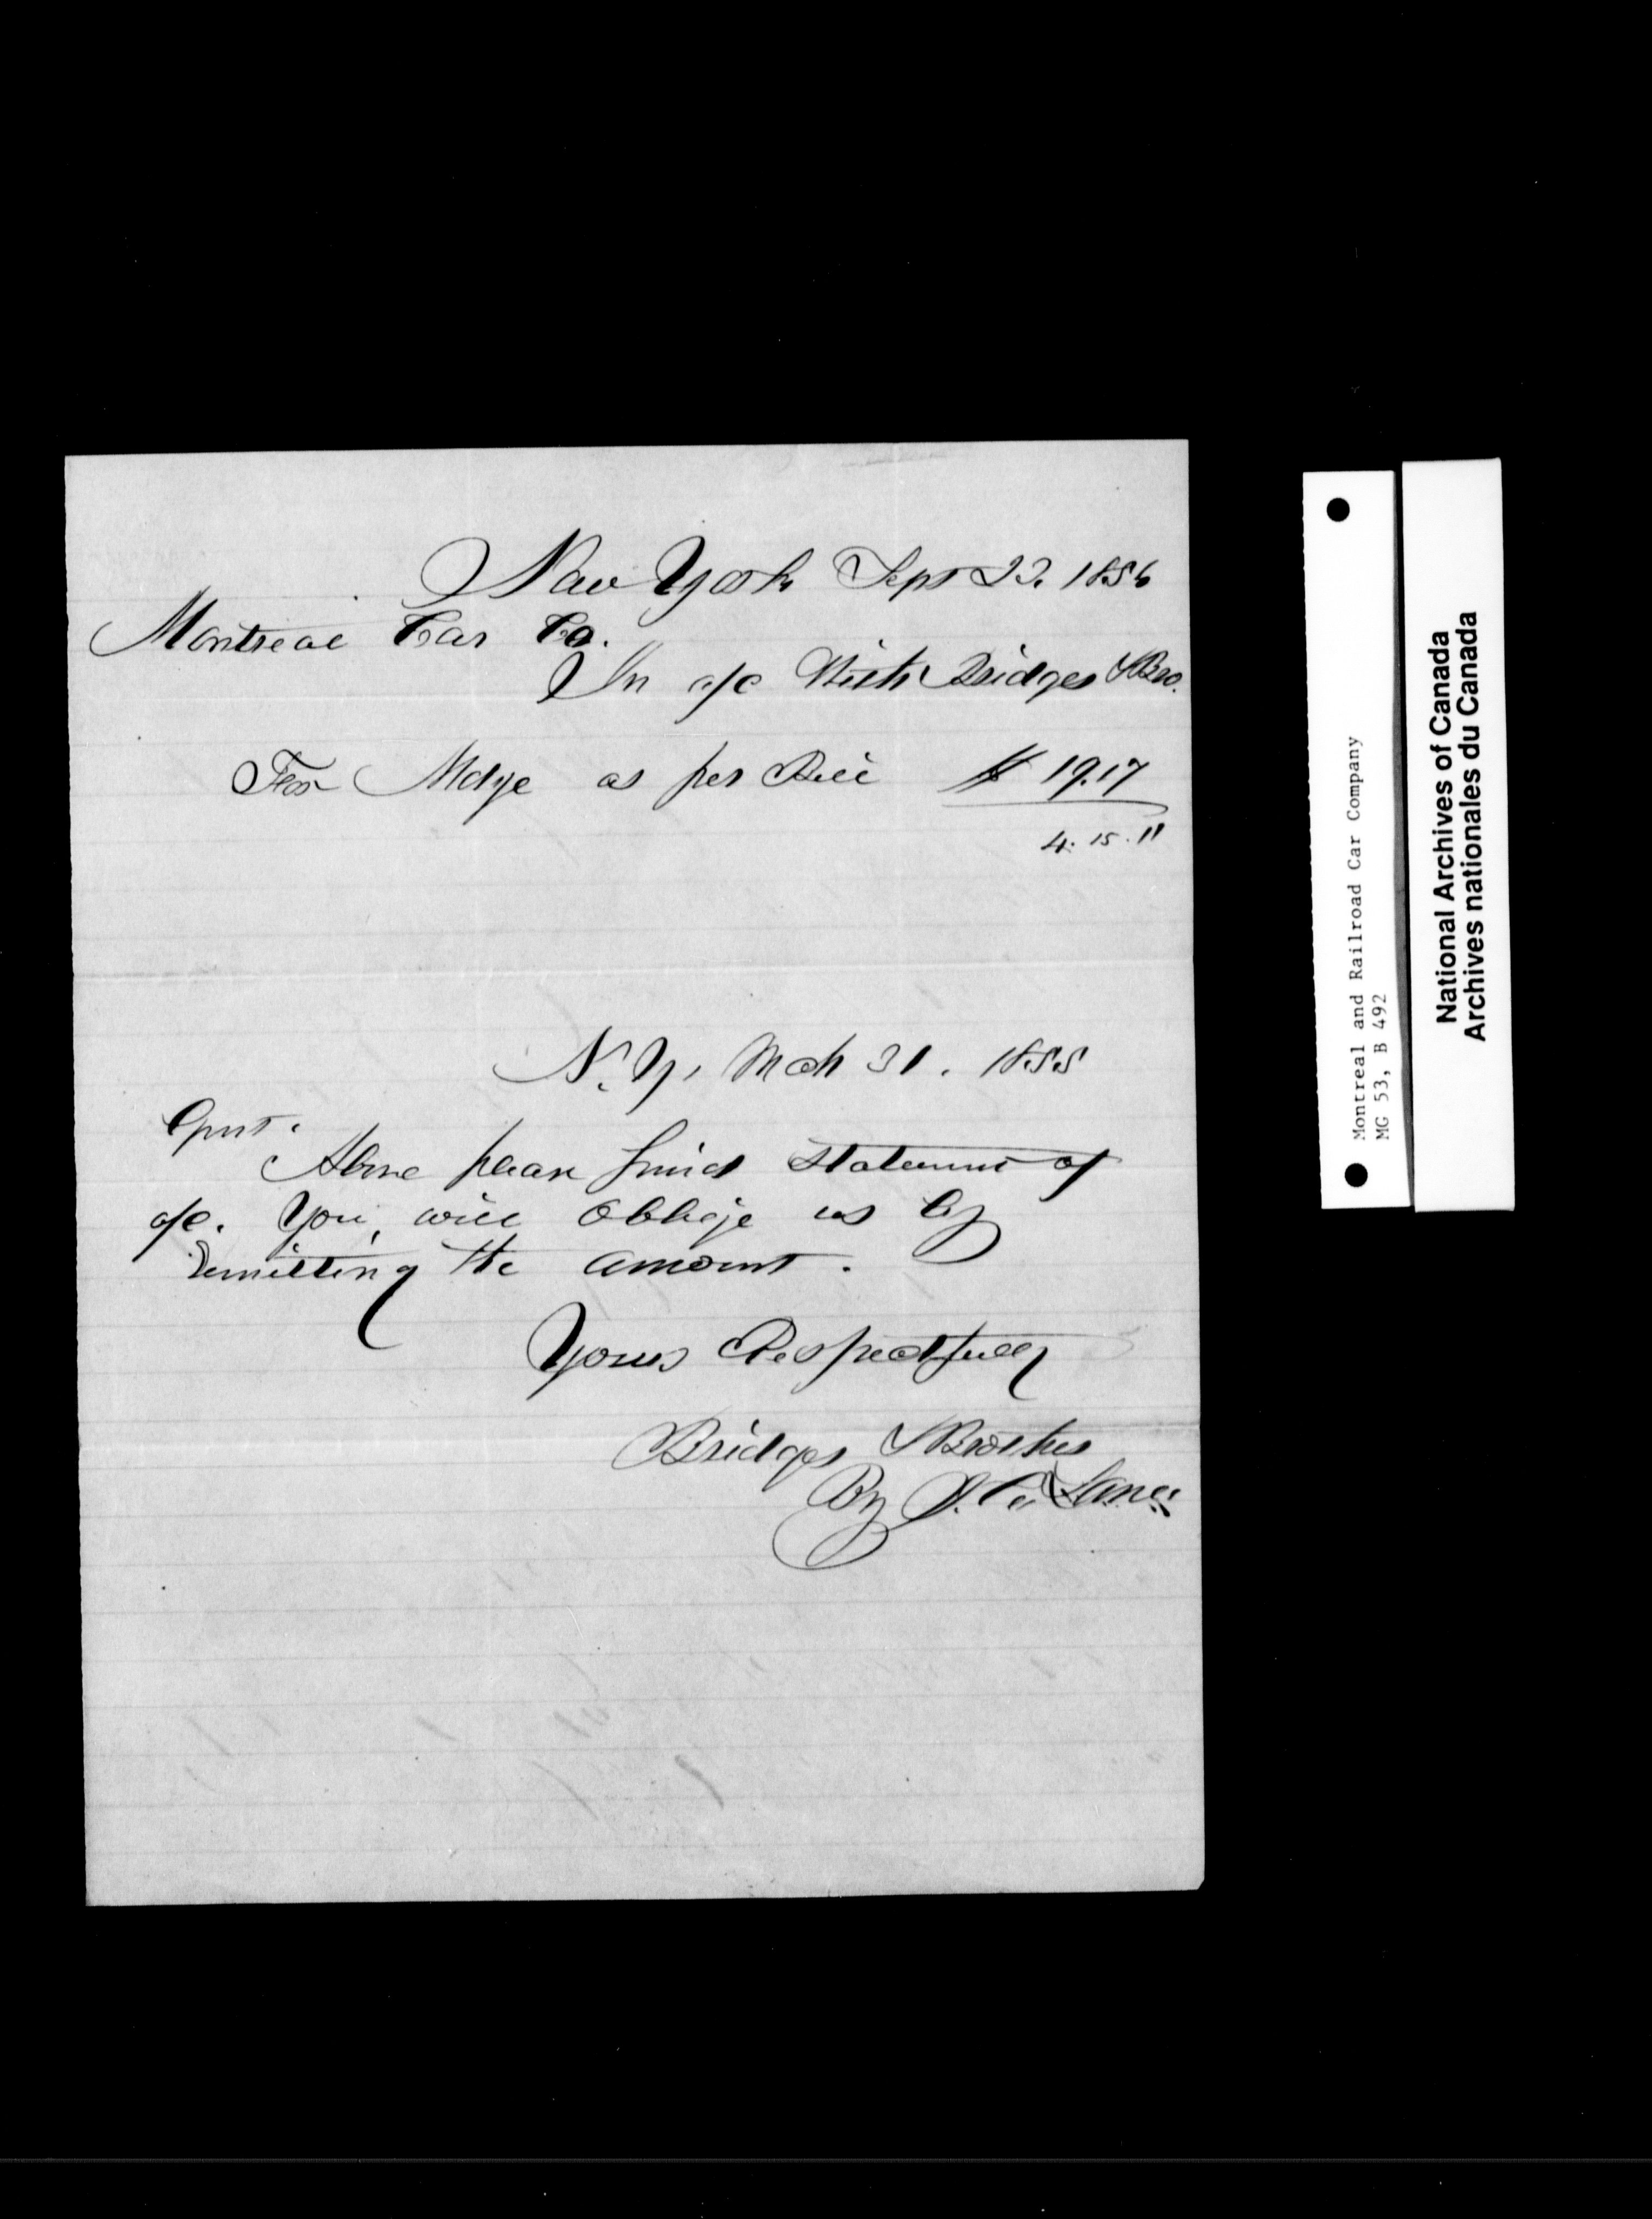 New York Sept 22. 1854
Montreal Car Co.
In a/c With Bridges & Bro.
For Mdge as per Bill $ 19.17
4. 15. 11
N. Y, Mch 31. 1855
Gent.
Above please find statement of
a/c. You will oblige us by
remitting the amount.
Yours Respectfully
Bridges & Brother
By Lane
Montreal and Railroad Car Company
MG 53, B 492
National Archives of Canada
Archives nationales du Canada